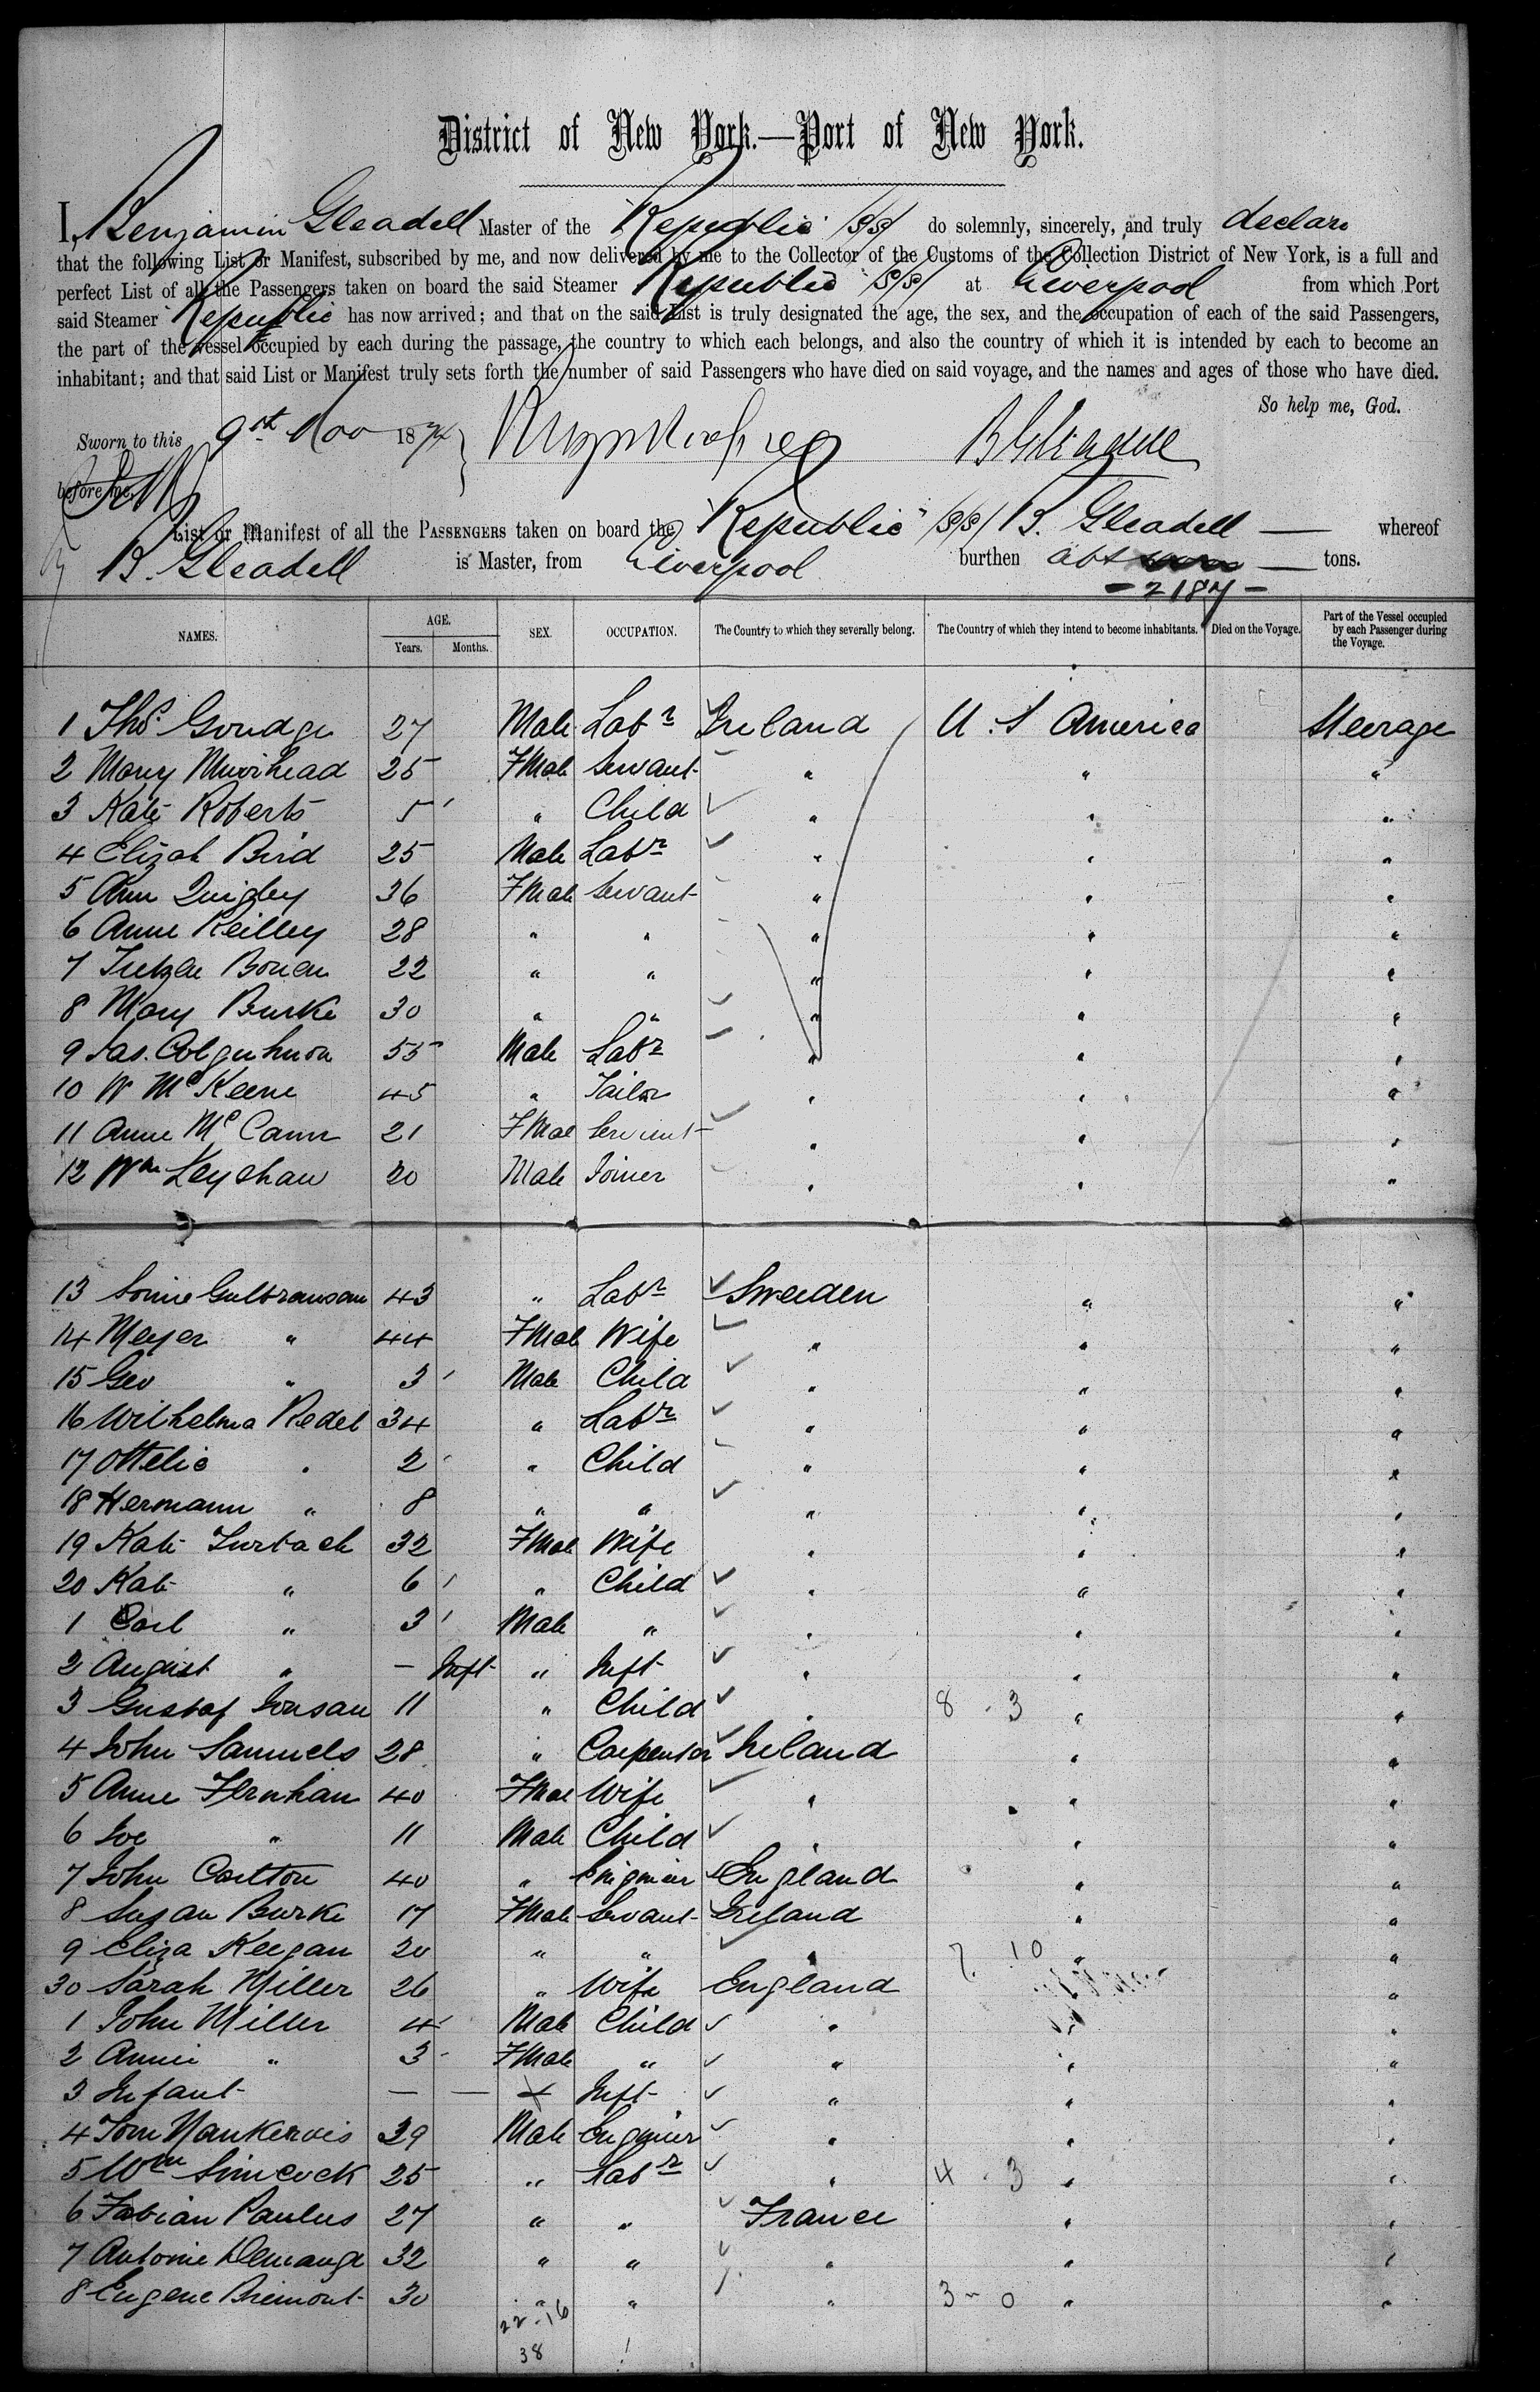 District of New York.—Port of New York.
I, Benjamin Gleadell Master of the Republic S/S/ do solemnly, sincerely, and truly declare
that the following List or Manifest, subscribed by me, and now delivered by me to the Collector of the Customs of the Collection District of New York, is a full and
perfect List of all the Passengers taken on board the said Steamer Republic S/S/ at Liverpool from which Port
said Steamer Republic has now arrived; and that on the said List is truly designated the age, the sex, and the occupation of each of the said Passengers,
the part of the vessel occupied by each during the passage, the country to which each belongs, and also the country of which it is intended by each to become an
inhabitant; and that said List or Manifest truly sets forth the number of said Passengers who have died on said voyage, and the names and ages of those who have died.
So help me, God.
Sworn to this 9st Nov 187
before me,
List or Manifest of all the PASSENGERS taken on board the "Republic" /SS/ B. Gleadell — whereof
B. Gleadell is Master, from Liverpool burthen abt — tons.
- 2187 -
NAMES. AGE. Years. Months. SEX. OCCUPATION. The Country to which they severally belong. The Country of which they intend to become inhabitants. Died on the Voyage. Part of the Vessel occupied by each Passenger during the Voyage.
1 Thos. Goudge 27 Male Labr Ireland U.S America Steerage
2 Mary Muirhead 25 FMale Servant " " "
3 Kate Roberts 5 " Child " " "
4 Elizah Bird 25 Male Labr " " "
5 Ann Quigley 36 FMale Servant " " "
6 Anne Reilley 28 " " " " "
7 Bowen 22 " " " " "
8 Mary Burke 30 " " " " "
9 Jas. Colquhuon 55 Male Labr " " "
10 W McKeene 45 " Tailor " " "
11 Anne McCann 21 FMale Servant " " "
12 Wm Leyshaw 20 Male Joiner " " "
13 Gulbransan 43 " Labr Sweden " "
14 Meyer " 44 FMale Wife " " "
15 Geo " 3 Male Child " " "
16 Wilhelma Redel 34 " Labr " " "
17 Ottelie " 2 " Child " " "
18 Hermann " 8 " " " " "
19 Kate Zurbach 32 FMale Wife " " "
20 Kate " 6 " Child " " "
1 Carl " 3 Male " " " "
2 August " — Inft " Inft " " "
3 Gustaf Jonsan 11 " Child " 8 - 3 " "
4 John Samuels 28 " Carpenter Ireland " "
5 Anne Fernhan 40 FMale Wife " " "
6 Joe " 11 Male Child " " "
7 John Carlton 40 " Engineer England " "
8 Susan Burke 17 FMale Servant Ireland " "
9 Eliza Keegan 20 " " " 7 10 " "
30 Sarah Miller 26 " Wife England "
1 John Miller 4 Male Child " " "
2 Annie " 3 FMale " " " "
3 Infant — — + Inft " " "
4 Tom Nankervis 39 Male Engineer " " "
5 Wm Simcock 25 " Labr " 4 - 3 " "
6 Fabian Paulus 27 " " France " "
7 Antonie Demange 32 " " " " "
8 Eugene Bremont 30 " " " 3 - 0 " "
22-16
38